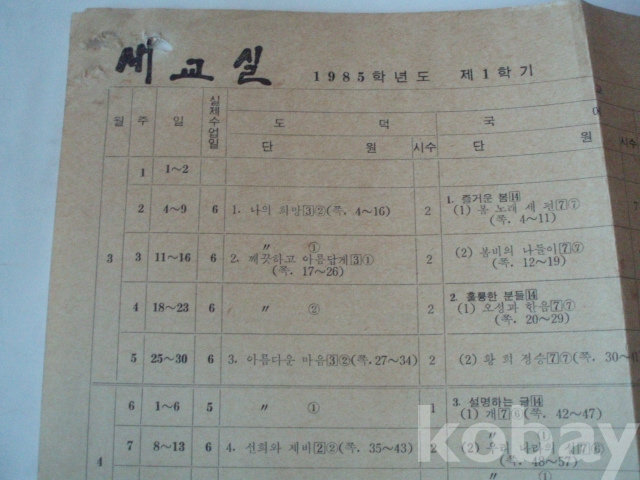 새교실 1985학년도 제1학기
월 주 일 실제수업일 도덕 국어
단원 시수 단원 시수
1 1~2
2 4~9 6 1. 나의 희망③②(쪽. 4~16) 2 1. 즐거운 봄⑭
(1) 봄 노래 새 전⑦⑦
(쪽. 4~11)
3 3 11~16 6 〃 ①
2. 깨끗하고 아름답게③①
(쪽. 17~26) 2 (2) 봄비의 나들이⑦⑦
(쪽. 12~19)
4 18~23 6 〃 ② 2 2. 훌륭한 분들⑭
(1) 오성과 한음⑦⑦
(쪽. 20~29)
5 25~30 6 3. 아름다운 마음③②(쪽.27~34) 2 (2) 황 희 정승⑦⑦(쪽. 30~
6 1~6 5 〃 ① 1 3. 설명하는 글⑭
(1) 개⑦⑥(쪽. 42~47)
4 7 8~13 6 4. 선희와 제비②②(쪽. 35~43) 2 〃 ①
(2) 우리 나라의
48~57)
〃 ①
kobay